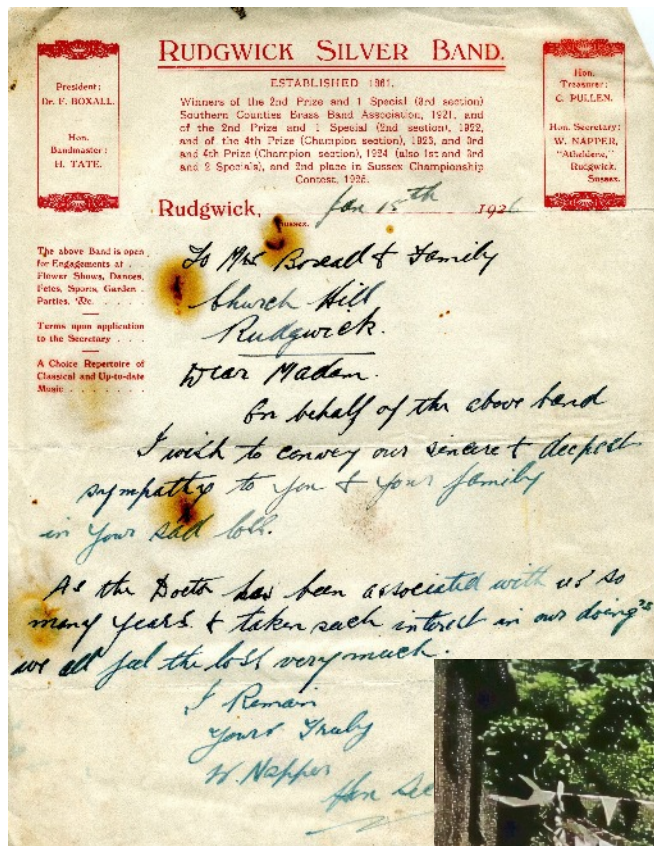 RUDGWICK SILVER BAND.
ESTABLISHED 1861.
Winners of the 2nd Prize and 1 Special (3rd section)
Southern Counties Brass Band Association, 1921, and
of the 2nd Prize and 1 Special (2nd section), 1922,
and of the 4th Prize (Champion section), 1923, and 3rd
and 4th Prize (Champion section), 1924 (also 1st and 3rd
and 2 Specials), and 2nd place in Sussex Championship
Contest, 1925.
President:
Dr. F. BOXALL.
Hon.
Bandmaster:
H. TATE.
Hon.
Treasurer:
C. PULLEN.
Hon. Secretary:
W. NAPPER,
"Atheldene,"
Rudgwick,
Sussex.
Rudgwick, Jan 15th 1926
Sussex.
The above Band is open
for Engagements at . .
Flower Shows, Dances,
Fetes, Sports, Garden .
Parties, &c. . . . .
Terms upon application
to the Secretary . . .
A Choice Repertoire of
Classical and Up-to-date
Music . . . . . . .
To Mrs Boxall & Family
Church Hill
Rudgwick.
Dear Madam.
On behalf of the above band
I wish to convey our sincere & deepest
sympathy to you & your family
in your sad loss.
As the Doctor has been associated with us so
many years & taken such interest in our doing's
we all feel the loss very much.
I Remain
Yours Truly
W. Napper
Hon Sec